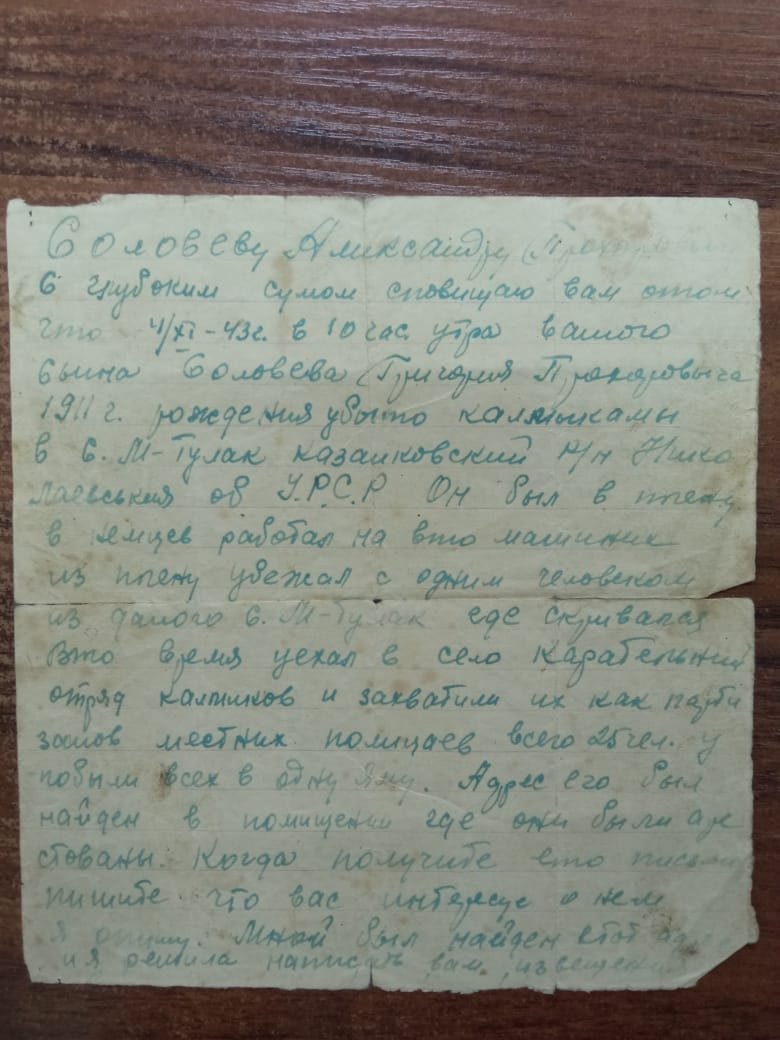 Соловеву Аликсандру Прохорови
С глубоким сумом сповищаю вам отом
что 4/XI-43г. в 10 час утра вашого
сына Соловева Григория Прохоровыча
1911 г. рождения убыто калмыкамы
в с. М-Тулак казанковский р/н Нико
лаевський об У.Р.С.Р Он был в плену
в немцев работал на вто машинах
из плену убежал с одним человеком
из даного с. М-Тулак где скривался
Вто время уехал в село карательний
отряд калмиков и захватили их как парти
занов местних полицаев всего 25 чел. у
побыли всех в одну яму. Адрес его был
найден в помищении где они были аре
стованы. Когда получите ето письмо
пишите что вас интересуе о нем
я опишу. Мной был найден етот адрес
и я решила написать вам извещение